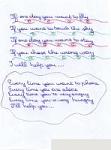 If one day you wanted to fly
If you wanted to touch the sky
If one day you wanted to
If you chose the wrong way
I will help you...
Every time you wanted to phone
Every time you are alone
Every time you're very angry
Every time you're very hungry
I'll help you